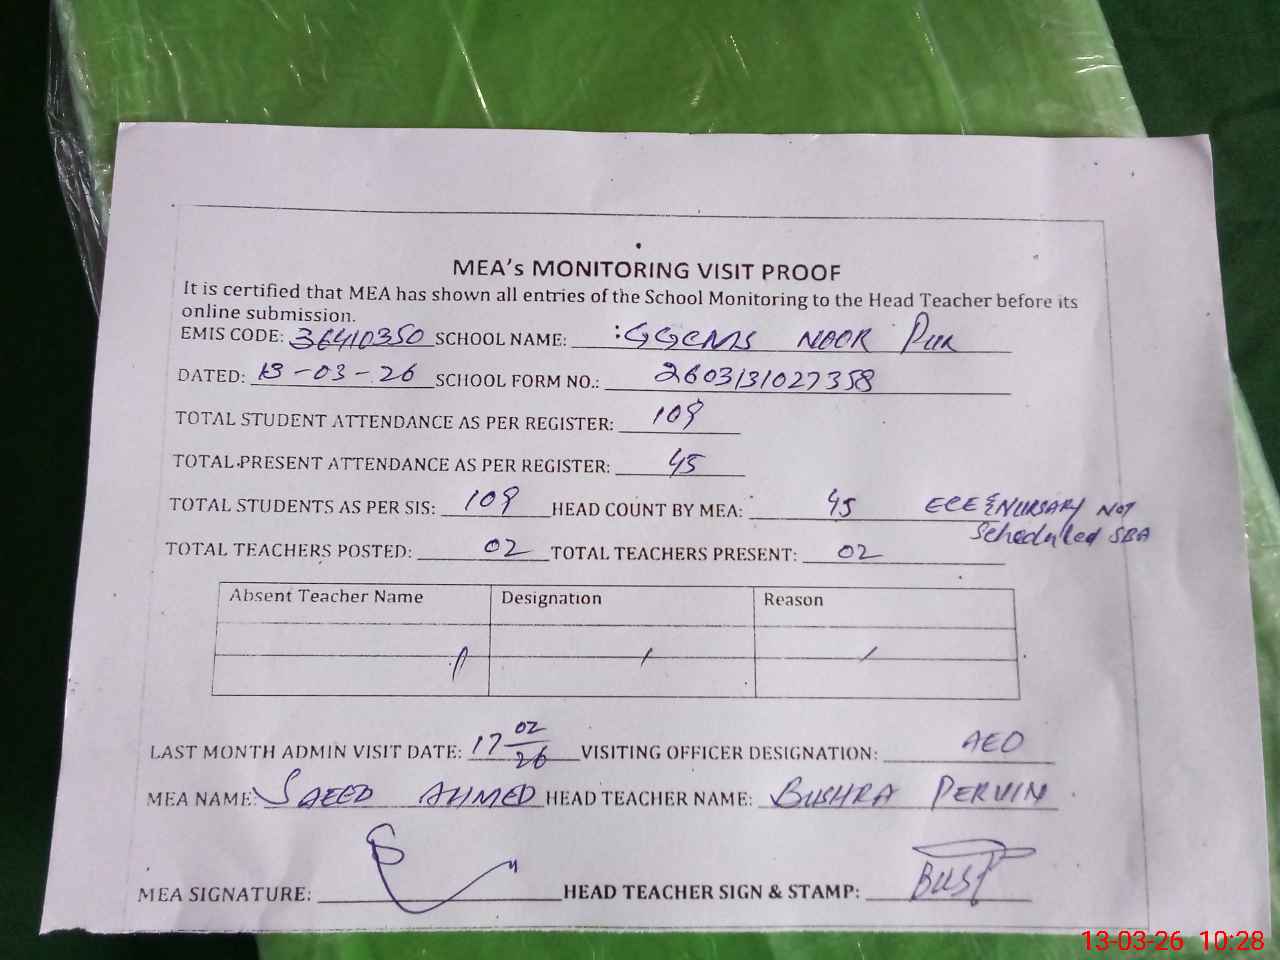 MEA's MONITORING VISIT PROOF
It is certified that MEA has shown all entries of the School Monitoring to the Head Teacher before its
online submission.
EMIS CODE: 36410350 SCHOOL NAME: GGCMS NOOR PUR
DATED: 13-03-26 SCHOOL FORM NO.: 2603131027358
TOTAL STUDENT ATTENDANCE AS PER REGISTER: 109
TOTAL PRESENT ATTENDANCE AS PER REGISTER: 45
TOTAL STUDENTS AS PER SIS: 109 HEAD COUNT BY MEA: 45 ECE & NURSARY NOT
Scheduled SBA
TOTAL TEACHERS POSTED: 02 TOTAL TEACHERS PRESENT: 02
Absent Teacher Name Designation Reason
LAST MONTH ADMIN VISIT DATE: 17 02/26 VISITING OFFICER DESIGNATION: AEO
MEA NAME: SAEED AHMED HEAD TEACHER NAME: BUSHRA PERVIN
MEA SIGNATURE: HEAD TEACHER SIGN & STAMP:
13-03-26 10:28